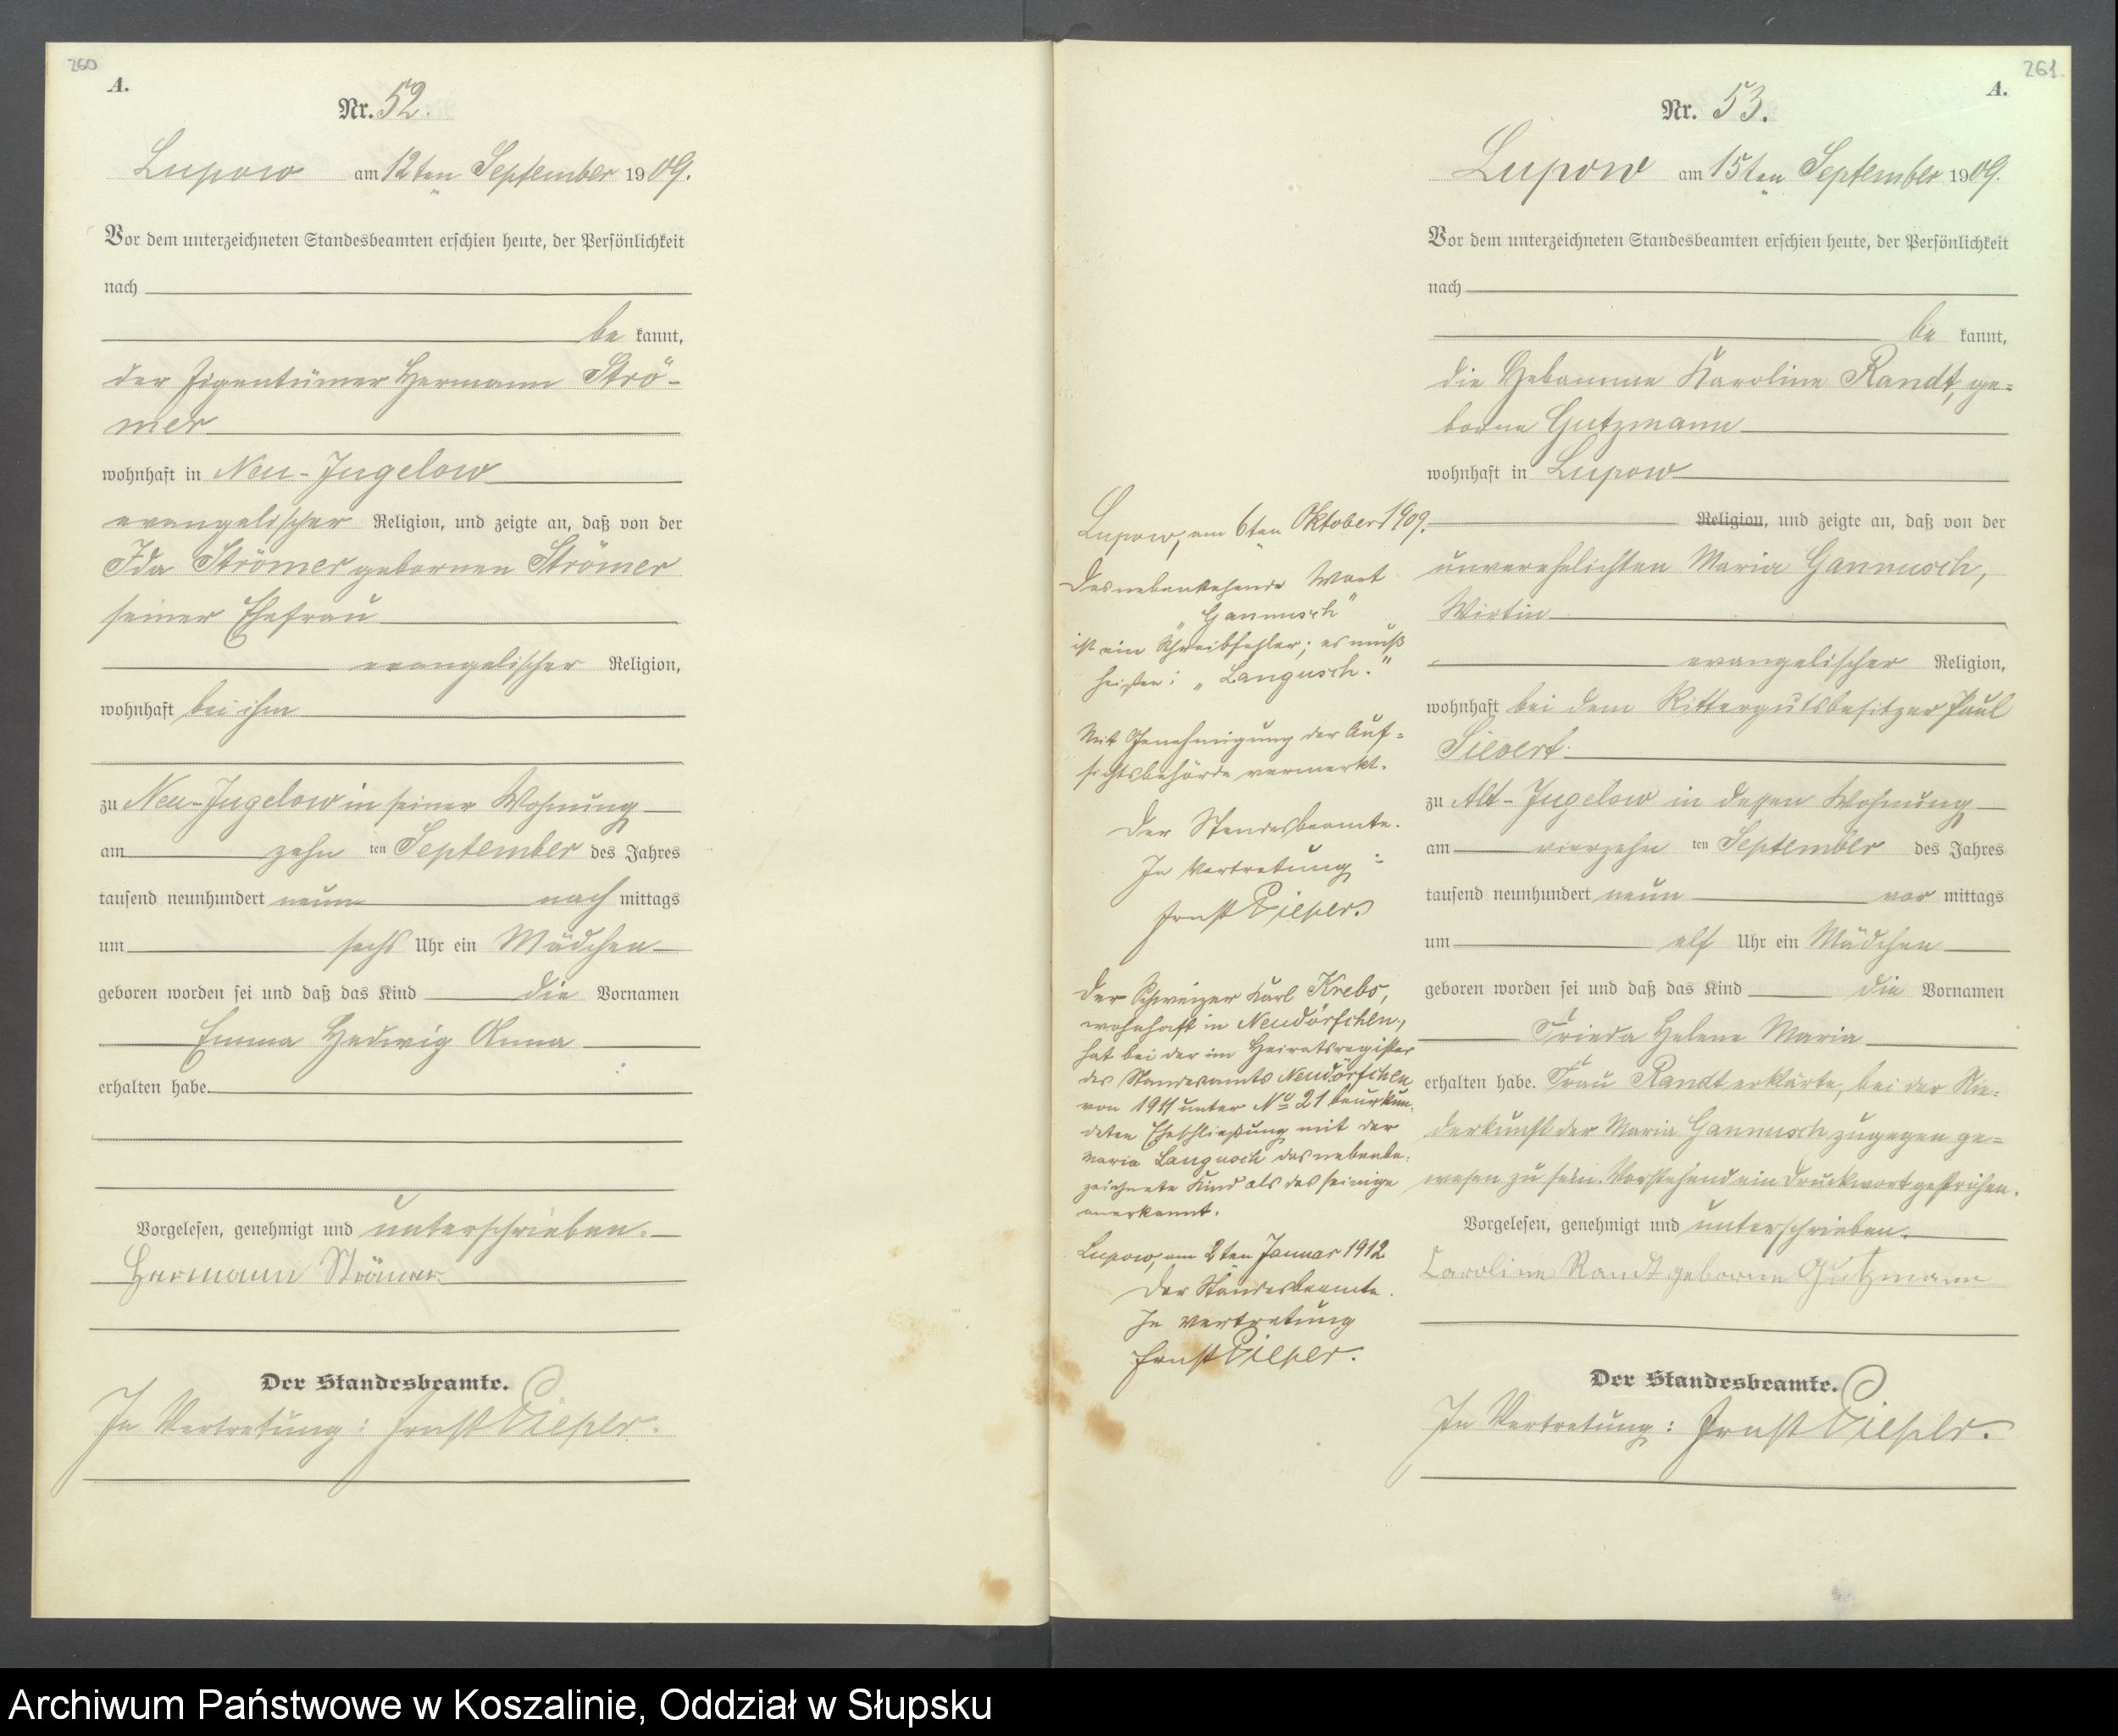 260
A.
Nr. 52.
Lupow am 12ten September 1909.
Vor dem unterzeichneten Standesbeamten erschien heute, der Persönlichkeit
nach
be kannt,
der Eigentümer Hermann Strö-
mer
wohnhaft in Neu-Jugelow
evangelischer Religion, und zeigte an, daß von der
Ida Strömer gebornen Strömer
seiner Ehefrau
evangelischer Religion,
wohnhaft bei ihm
zu Neu-Jugelow in seiner Wohnung
am zehn ten September des Jahres
tausend neunhundert neun nach mittags
um sechs Uhr ein Mädchen
geboren worden sei und daß das Kind die Vornamen
Emma Hedwig Anna
erhalten habe.
Vorgelesen, genehmigt und unterschrieben.
Hermann Strömer
Der Standesbeamte.
In Vertretung: Ernst Pieper.
261
A.
Nr. 53.
Lupow am 15ten September 1909.
Vor dem unterzeichneten Standesbeamten erschien heute, der Persönlichkeit
nach
be kannt,
die Hebamme Karoline Randt, ge=
borne Gutzmann
wohnhaft in Lupow
Religion, und zeigte an, daß von der
unverehelichten Maria Gannusch,
Wirtin
evangelischer Religion,
wohnhaft bei dem Rittergutsbesitzer Paul
Sievert
zu Alt-Jugelow in dessen Wohnung
am vierzehn ten September des Jahres
tausend neunhundert neun vor mittags
um elf Uhr ein Mädchen
geboren worden sei und daß das Kind die Vornamen
Frieda Helene Maria
erhalten habe. Frau Randt erklärte, bei der Nie=
derkunft der Maria Gannusch zugegen ge=
wesen zu sein. Vorstehend ein Druckwort gestrichen.
Vorgelesen, genehmigt und unterschrieben.
Caroline Randt geborne Gutzmann
Der Standesbeamte.
In Vertretung: Ernst Pieper.
Lupow, am 6ten Oktober 1909.
Das nebenstehende Wort
„Gannusch"
ist ein Schreibfehler; es muß
heißen: „Langusch."
Mit Genehmigung der Auf=
sichtsbehörde vermerkt.
Der Standesbeamte.
In Vertretung:
Ernst Pieper.
Der Schweizer Karl Krebs,
wohnhaft in Neudörfchen,
hat bei der im Heiratsregister
des Standesamts Neudörfchen
von 1911 unter No 21 beurkun=
deten Eheschließung mit der
Maria Langusch das nebenbe=
zeichnete Kind als das seinige
anerkannt.
Lupow, am 2ten Januar 1912
Der Standesbeamte.
In Vertretung
Ernst Pieper.
Archiwum Państwowe w Koszalinie, Oddział w Słupsku